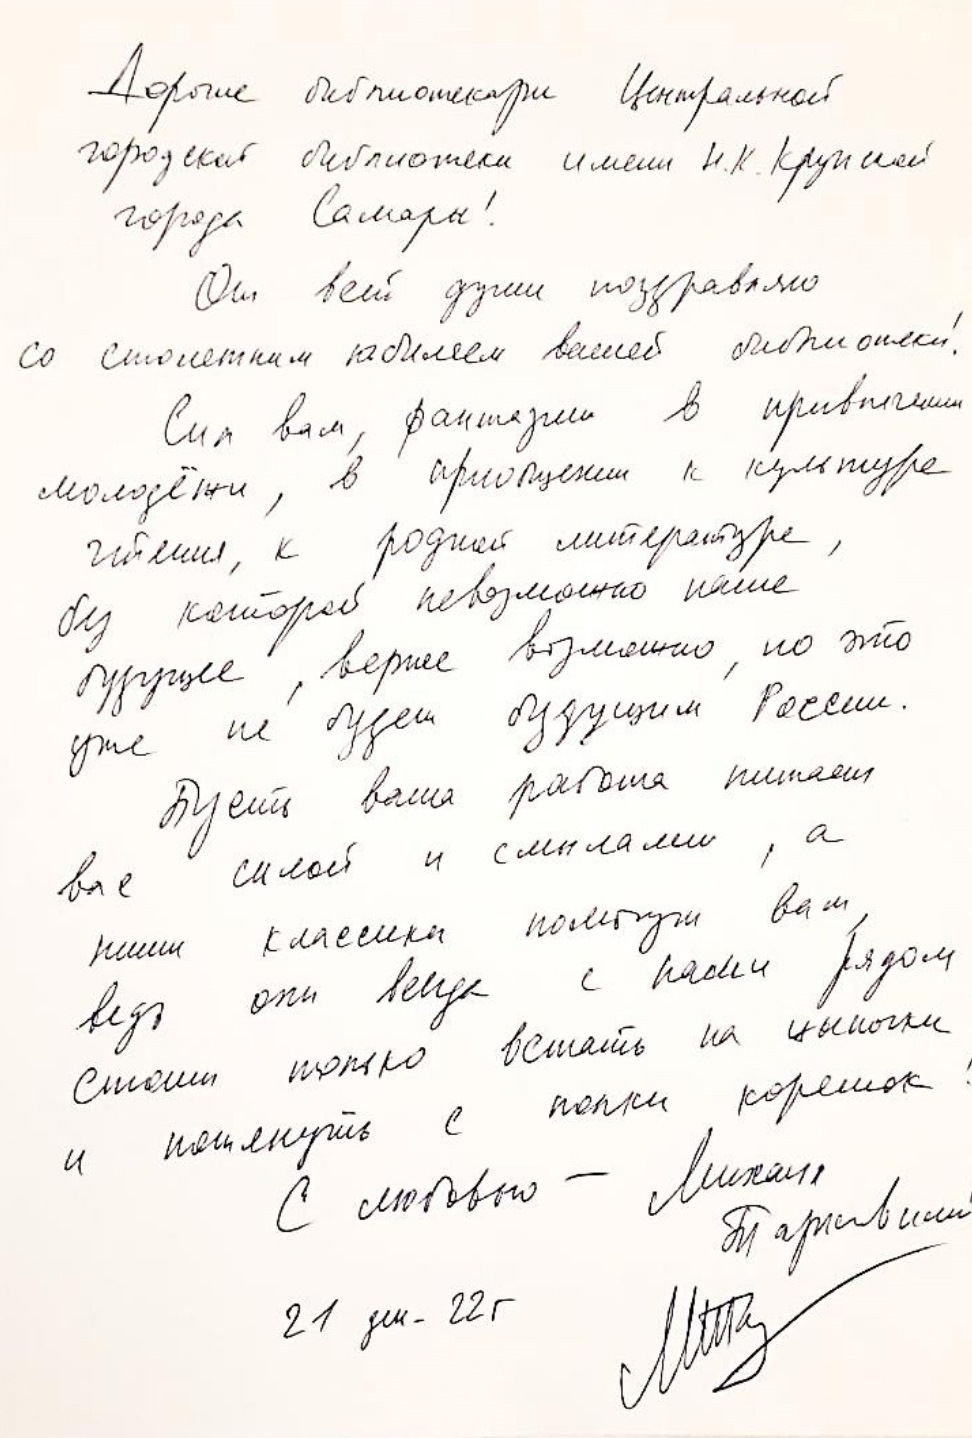 Дорогие библиотекари Центральной
городской библиотеки имени Н.К. Крупской
города Самары!
От всей души поздравляю
со столетним юбилеем вашей библиотеки!
Сил вам, фантазии в привлечении
молодёжи, в приобщении к культуре
чтения, к родной литературе,
без которой невозможно наше
будущее, вернее возможно, но это
уже не будет будущим России.
Пусть ваша работа питает
вас силой и смыслами, а
наши классики помогут вам,
ведь они всегда с нами рядом
Стоит только встать на цыпочки
и потянуть с полки корешок!
С любовью — Михаил
Тарковский
21 дек. 22г